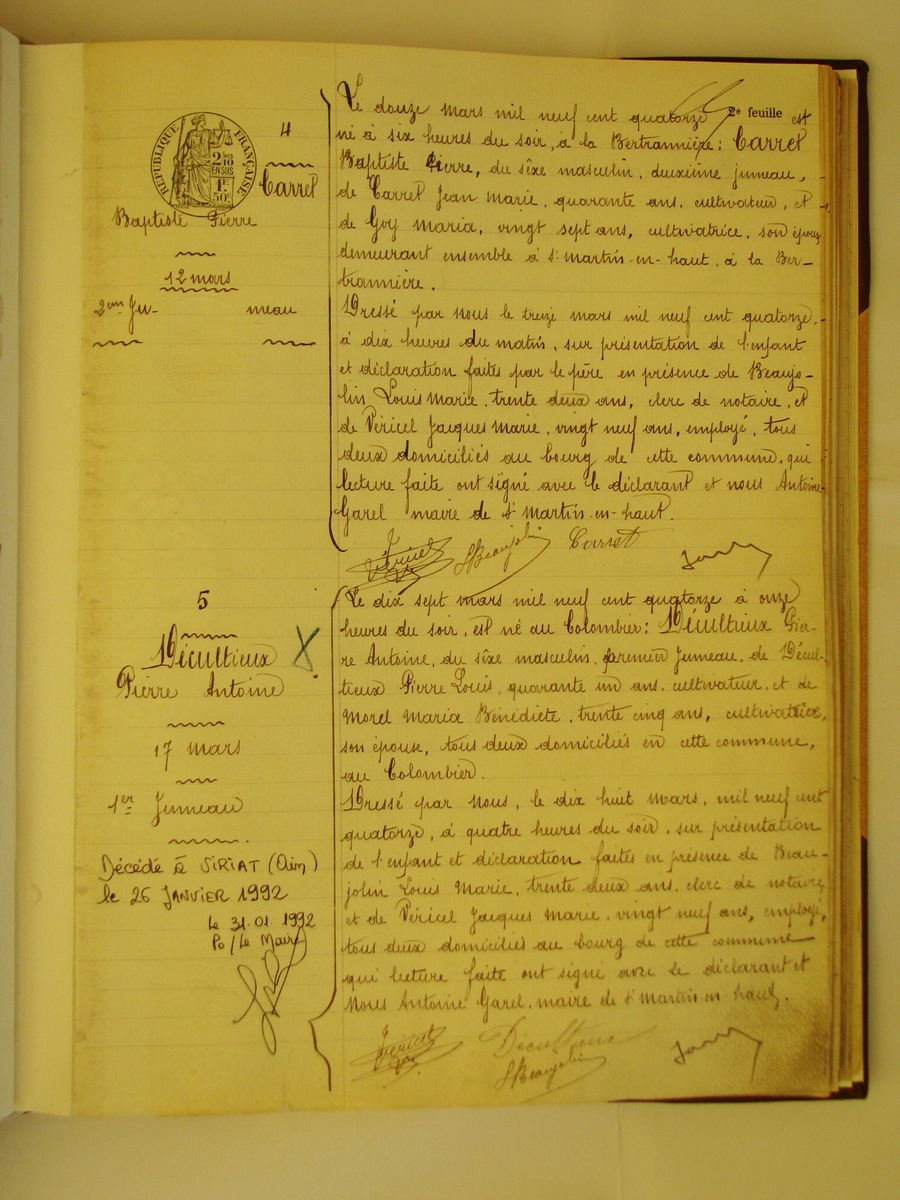 RÉPUBLIQUE FRANÇAISE
2/10 EN SUS
1F 50c
4
Carret
Baptiste Pierre
12 mars
2em Ju- meau
2e feuille
Le douze mars mil neuf cent quatorze est
né à six heures du soir, à la Bertrannière: Carret
Baptiste Pierre, du sèxe masculin, deuxième jumeau,
de Carret Jean Marie, quarante ans, cultivateur, et
de Goy Maria, vingt sept ans, cultivatrice, son épouse
demeurant ensemble à St martin-en-haut, à la Ber-
trannière.
Dressé par nous le treize mars mil neuf cent quatorze,
à dix heures du matin, sur présentation de l'enfant
et déclaration faites par le père en présence de Beaujo-
lin Louis Marie, trente deux ans, clerc de notaire, et
de Véricel Jacques Marie, vingt neuf ans, employé, tous
deux domiciliés au bourg de cette commune, qui
lecture faite ont signé avec le déclarant et nous Antoine
Garel maire de St Martin-en-haut.
Véricel LBeaujolin Carret
5
Décultieux
Pierre Antoine
17 mars
1er Jumeau
Décédé à VIRIAT (Ain)
le 26 JANVIER 1992
Le 31.01.1992
Po/Le Maire
Le dix sept mars mil neuf cent quatorze à onze
heures du soir, est né au Colombier: Décultieux Pier-
re Antoine, du sèxe masculin, premier Jumeau, de Décul-
tieux Pierre Louis, quarante un ans, cultivateur, et de
Morel Maria Bénédicte, trente cinq ans, cultivatrice,
son épouse, tous deux domiciliés en cette commune,
au Colombier.
Dressé par Nous, le dix huit Mars, mil neuf cent
quatorze, à quatre heures du soir, sur présentation
de l'enfant et déclaration faites en présence de Beau-
jolin Louis Marie, trente deux ans, clerc de notaire,
et de Véricel Jacques Marie, vingt neuf ans, employé,
tous deux domiciliés au bourg de cette commune
qui lecture faite ont signé avec le déclarant et
Nous Antoine Garel, maire de St Martin-en-haut.
Véricel Décultieux
LBeaujolin